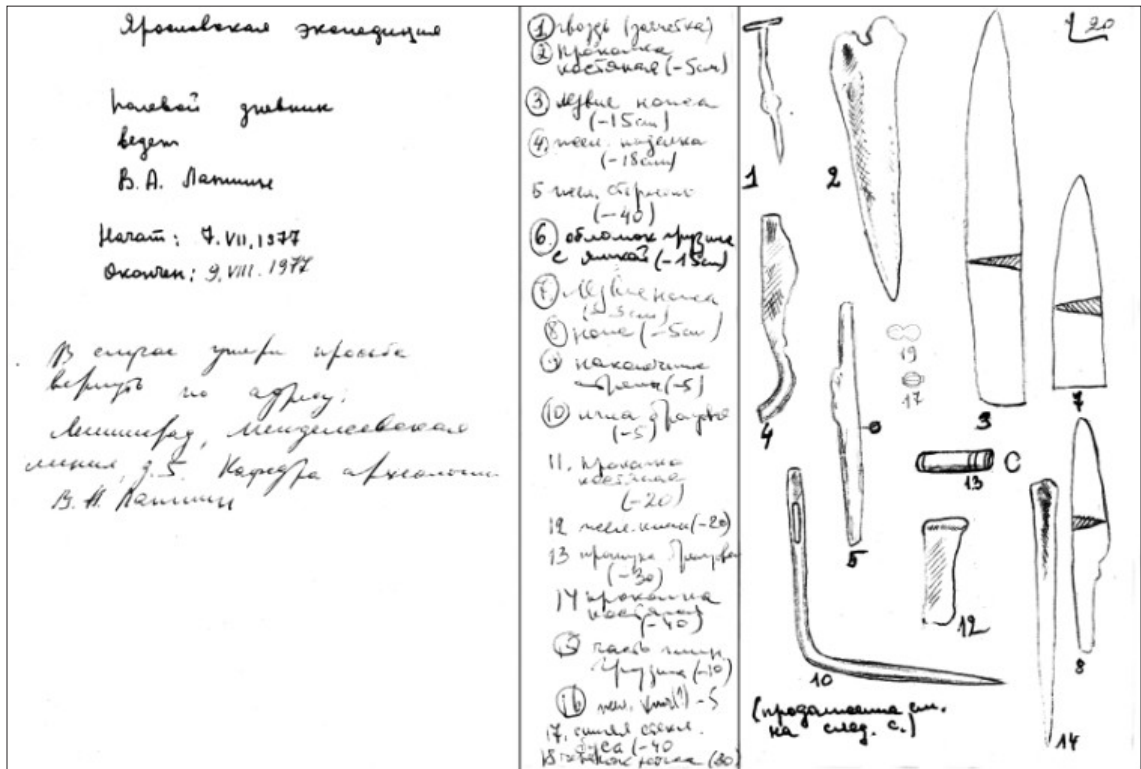 Ярославская экспедиция
полевой дневник
ведет
В. А. Лапшин
Начат: 7. VII. 1977
Окончен: 9. VIII. 1977
В случае утери просьба
вернуть по адресу:
Ленинград, Менделеевская
линия, д. 5. Кафедра археологии
В. А. Лапшин
1 гвоздь
2 проколка
костяная (-5см)
3 Лезвие ножа
(-15см)
4. жел. поделка
(-18см)
5 жел. стержень
(-40)
6. обломок грузика
с ямкой (-15см)
7 Лезвие ножа
8 нож (-5см)
9 наконечник
стрелы (-5)
10 игла бронзовая
(-5)
11. проколка
костяная
(-20)
12 жел. клин (-20)
13 пронизка бронзовая
(-30)
14 проколка
костяная
(-40)
15 часть глин.
грузика (-10)
16 жел. (?) -5
17. синяя стекл.
бусина (-40
18 (30)
20
1
2
19
17
3
7
4
13
5
12
8
10
(продолжение см.
на след. с.)
14